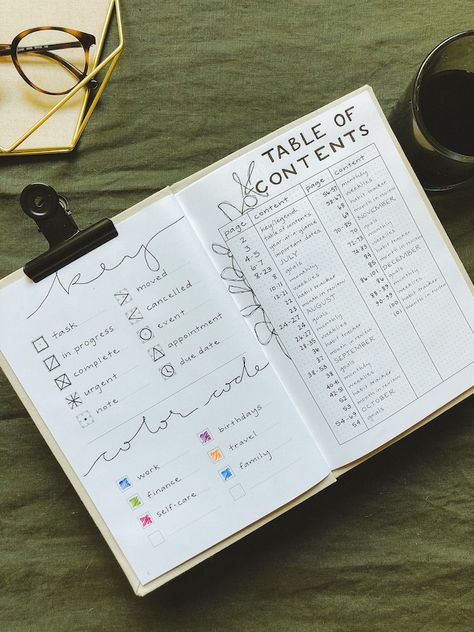 key
task
in progress
complete
urgent
note
moved
cancelled
event
appointment
due date
color code
work
finance
self-care
birthdays
travel
family
TABLE OF
CONTENTS
page content
2 key/legend
3 table of contents
4-5 year-at-a-glance
6-7 important dates
JULY
goals
monthly
10-11 weeklies
12-21 habit tracker
22 month in review
23 AUGUST
24-27 goals
monthly
weeklies
habit tracker
month in review
SEPTEMBER
goals
monthly
weeklies
habit tracker
month in review
OCTOBER
54 goals
page content
monthly
weeklies
habit tracker
month in review
NOVEMBER
goals
monthly
weeklies
habit tracker
month in review
DECEMBER
goals
monthly
weeklies
habit tracker
month in review